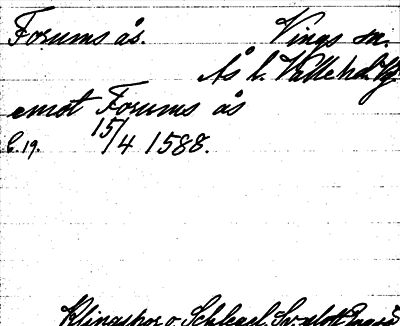 Forums ås. Vings sn.
Ås h. Valle hd. Vg
emot Forums ås
C.19. 15/4 1588.
Klingspor o. Schlegel, Sv. slott